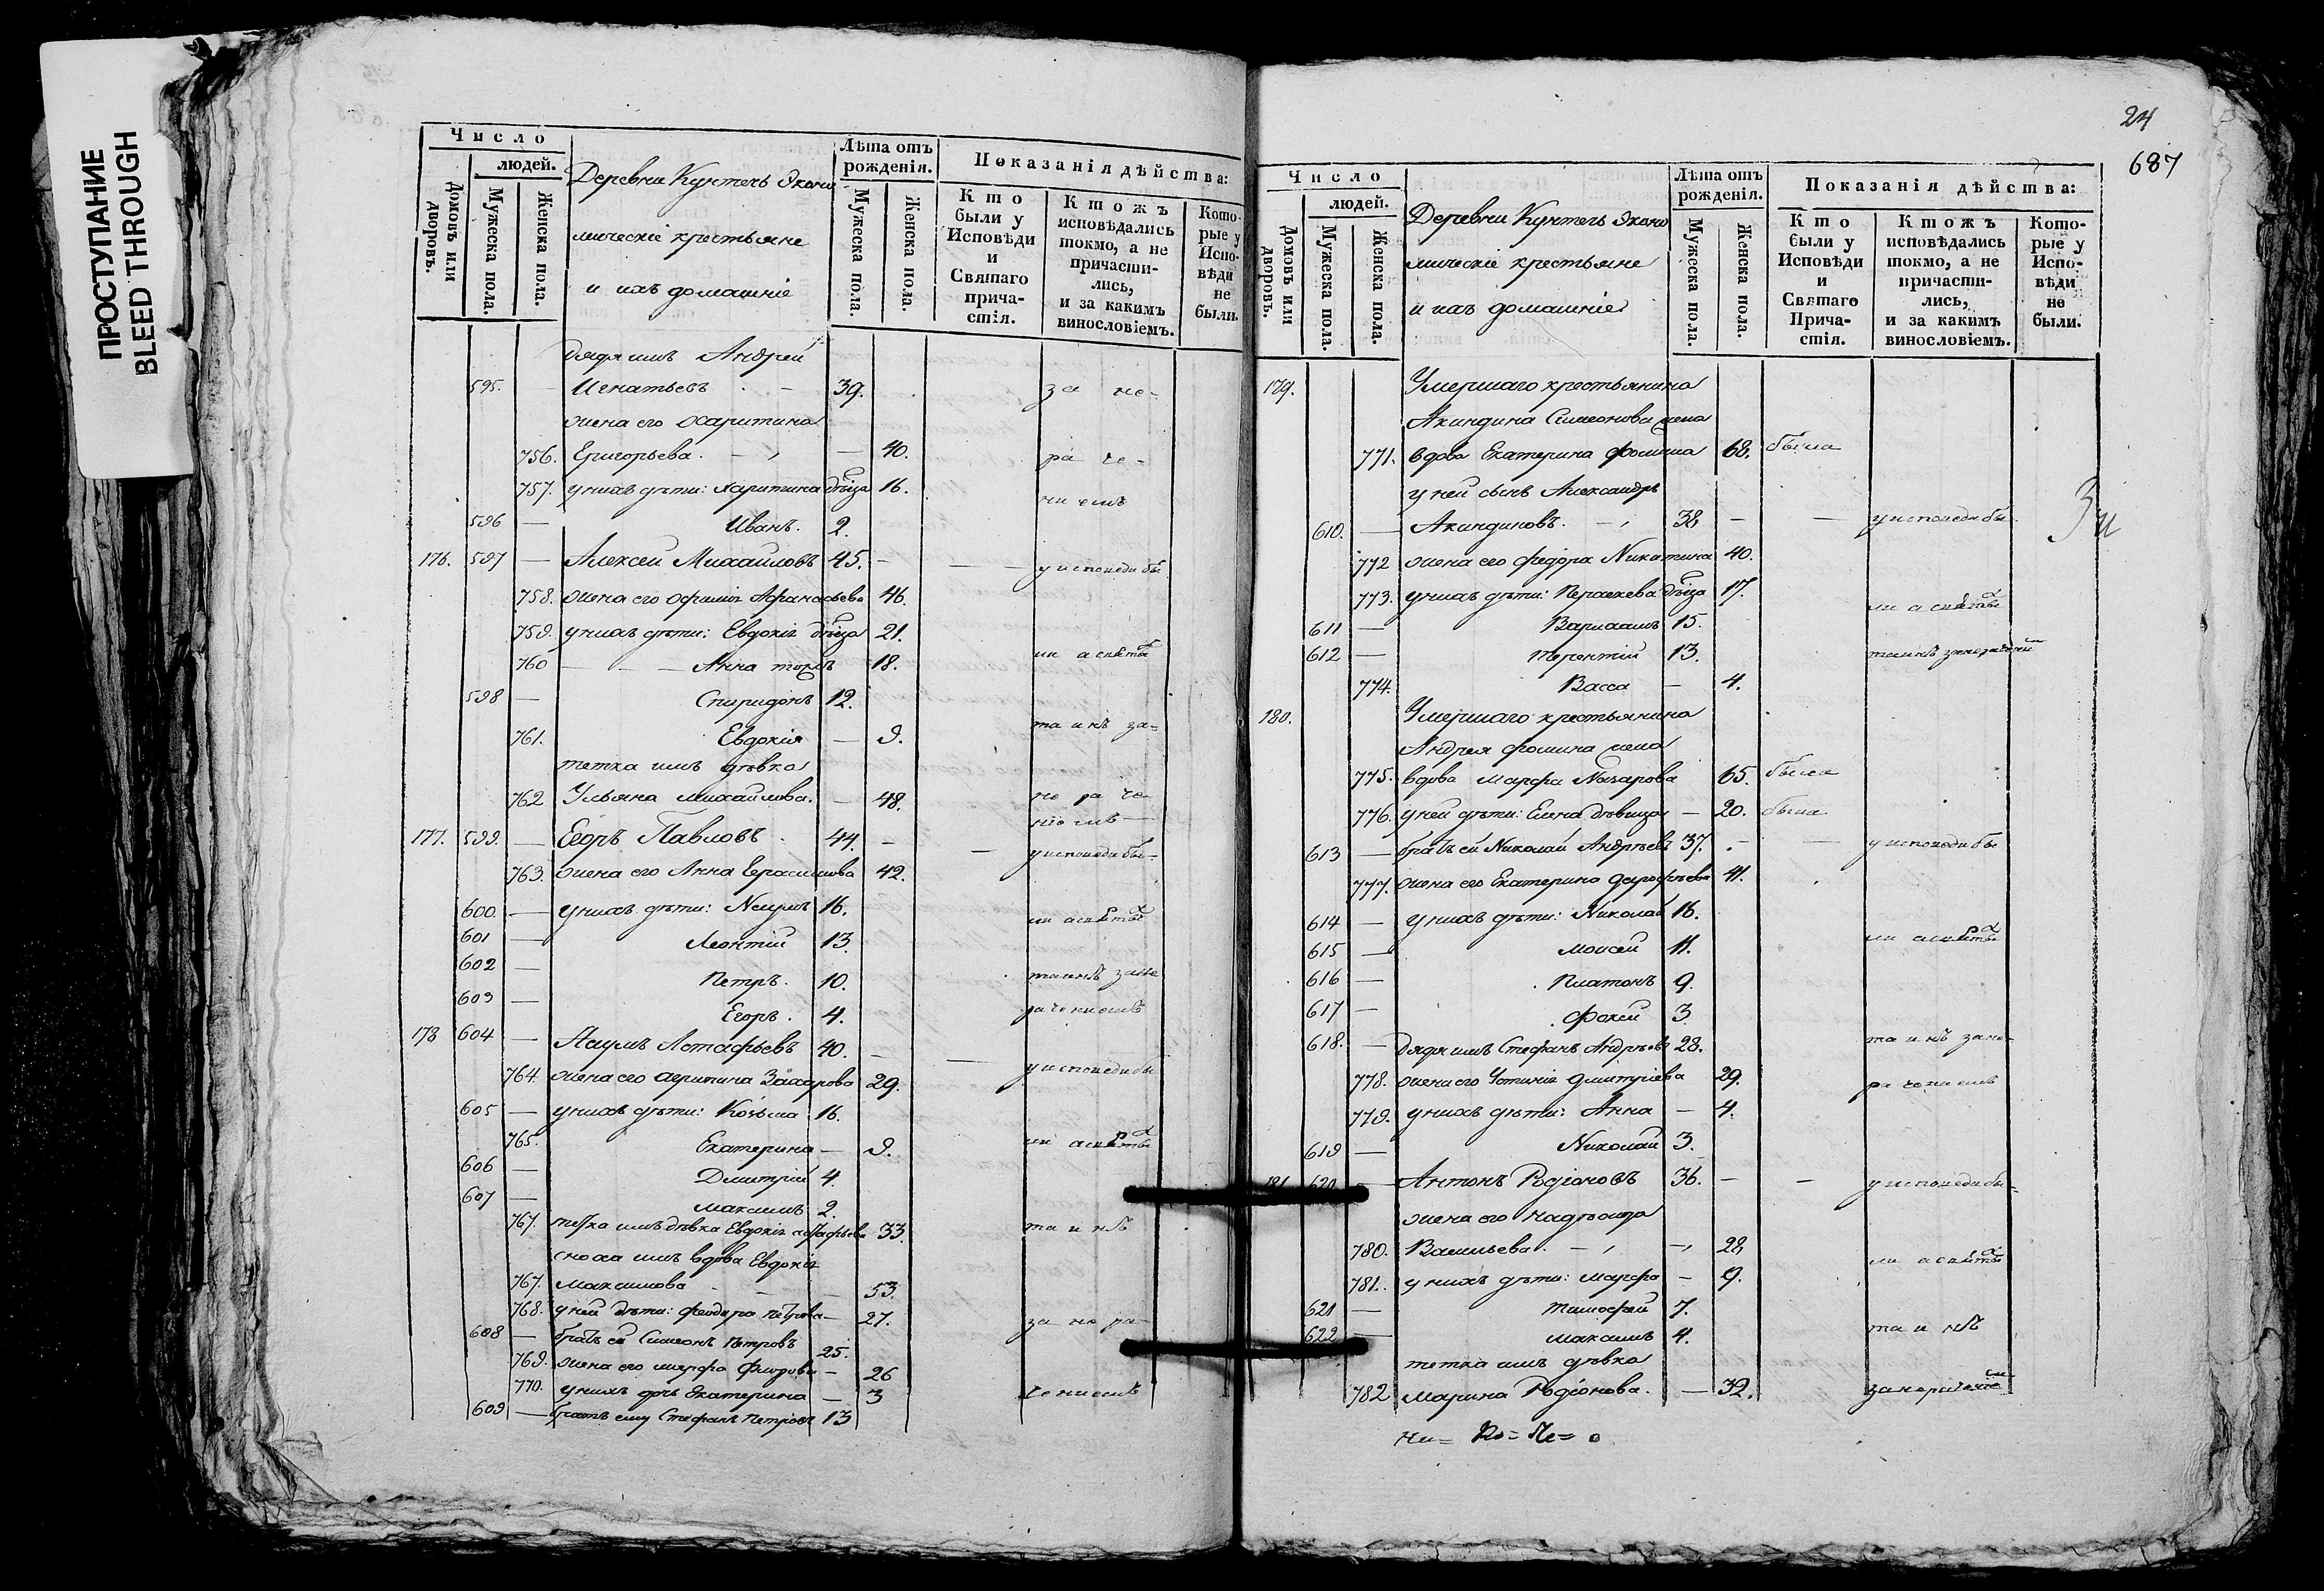 ПРОСТУПАНИЕ
BLEED THROUGH
Число
людей.
Домовъ или дворовъ.
Мужеска пола.
Женска пола.
Деревни Кунтечь Эконо
мическіе крестьяне
и ихъ домашніе
Лѣта отъ рожденія.
Мужеска пола.
Женска пола.
Показанія дѣйства:
Кто были у Исповѣди и Святаго причастія.
Ктожъ исповѣдались токмо, а не причастились, и за какимъ винословіемъ.
Которые у Исповѣди не были.
дядя имъ Андрей
595. Игнатьевъ 39. за не-
жена его Харитина
756. Григорьева. 40. ра че-
757. у нихъ дѣти: Харитина дѣвца 16. ни емъ
596 — Иванъ. 2.
176. 597 — Алексей Михайловъ 45. у исповеди бы
758. жена его Офимія Афанасьева 46.
759. у нихъ дѣти: Евдокія дѣвца 21.
760 — Анна тожъ 18. ли а святы
598 — Спиридонъ 12.
761. Евдокія — 9. та инъ за-
тетка имъ дѣвка
762 Ульяна Михайлова. — 48. не ра че-
ніемъ
177. 599. — Егоръ Павловъ 44. у исповеди бы-
763. жена его Анна Герасимова 42.
600. — у нихъ дѣти: Наумъ 16. ли а святы
601 — Леонтій 13.
602 — Петръ. 10. таинъ зане
603 — Егоръ. 4. рачениемъ
178 604 — Наумъ Астафьевъ 40. у исповеди бы
764. жена его Агрипина Захарова 29.
605 — у нихъ дѣти: Козьма 16.
765. Екатерина — 9. ли а святы
606 — Димитрій 4.
607 — Максимъ 2.
767. тетка имъ дѣвка Евдокія 33. та и нъ
сноха имъ вдова Евдокія
767. Максимова 53.
768. у ней дѣти: Феодора Петрова — 27. за не ра-
608 — братъ ей Симеонъ Петровъ 25.
769. жена его Марфа — 26
770. у нихъ дочь Екатерина — 3 чениемъ
609 — братъ ему Стефанъ Петровъ 13
24
687
Число
людей.
Домовъ или дворовъ.
Мужеска пола.
Женска пола.
Деревни Кунтечь Эконо
мическіе крестьяне
и ихъ домашніе
Лѣта отъ рожденія.
Мужеска пола.
Женска пола.
Показанія дѣйства:
Кто были у Исповѣди и Святаго Причастія.
Ктожъ исповѣдались токмо, а не причастились, и за какимъ винословіемъ.
Которые у Исповѣди не были.
179. Умершаго крестьянина
Акиндина Симеонова жена
771. вдова Екатерина Фомина 68. была
у ней сынъ Александръ
610. — Акиндиновъ. 38 — — у исповеди бы-
772 жена его Федора Никитина 40.
773. у нихъ дѣти: Параскева дѣвца 17. ли а святы
611 — Варлаамъ 15.
612 — Терентій 13. таинъ занерачений
774. Васса — 4.
180. Умершаго крестьянина
Андрея Фомина жена
775. вдова Марфа Назарова 65. была
776. у ней дѣти: Елена дѣвица — 20. была
613 — братъ ей Николай Андреевъ 37. у исповеди бы
777. жена его Екатерина Дорофѣева 41.
614 — у нихъ дѣти: Николай 16.
615 — Моисей 11. ли а святы
616 — Платонъ 9.
617 — Фокей 3.
618. — дядя имъ Стефанъ Андреевъ 28. та и нъ зане-
778. жена его Устинія Дмитріева 29. ра чениемъ
779. у нихъ дѣти: Анна — 4.
619 — Николай 3.
181 620 — Антонъ Родіоновъ 36. — — у исповеди бы-
жена его Надѣжда
780. Васильева. 28. ли а святы
781. у нихъ дѣти: Марфа — 9.
621 — Тимофей 7.
622 — Максимъ 4. та и нъ
тетка имъ дѣвка
782 Марина Родіонова. — 32. занерачение
Ни=